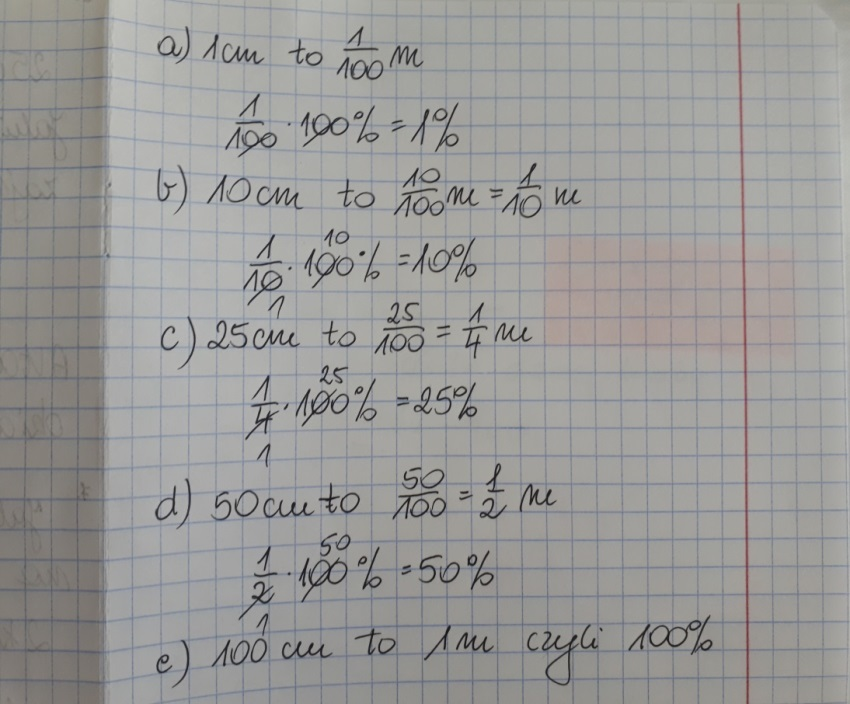 a) 1cm to 1/100 m
1/100 · 100% = 1%
b) 10cm to 10/100 m = 1/10 m
1/10 · 100% = 10%
10
1
c) 25cm to 25/100 = 1/4 m
1/4 · 100% = 25%
25
1
d) 50cm to 50/100 = 1/2 m
1/2 · 100% = 50%
50
1
e) 100 cm to 1m czyli 100%